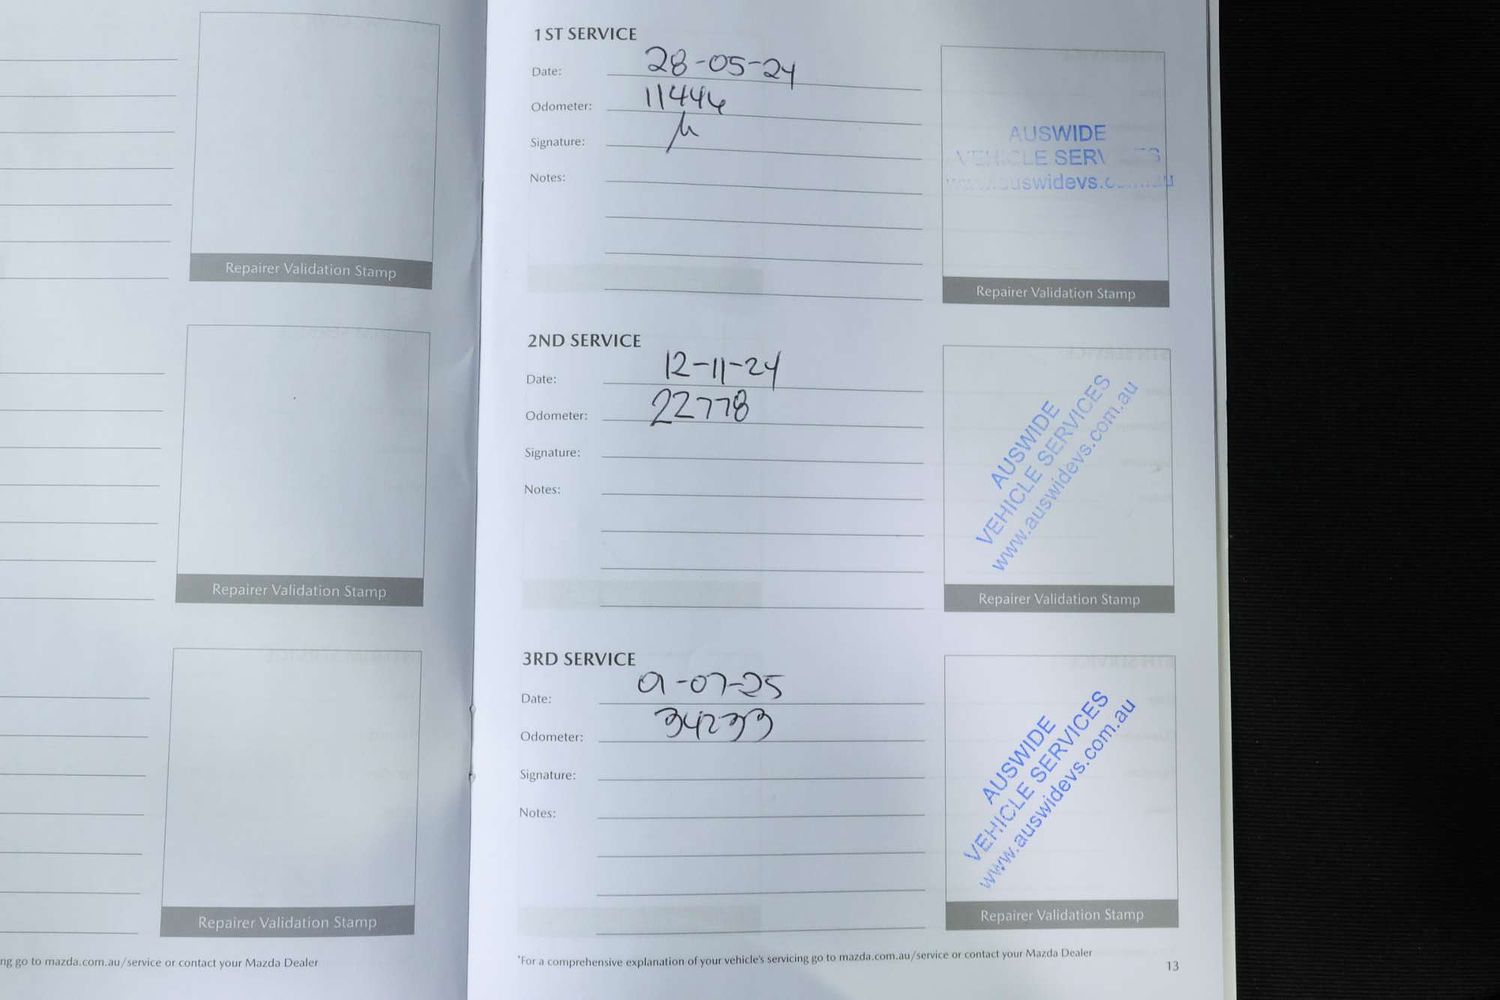 Repairer Validation Stamp
Repairer Validation Stamp
Repairer Validation Stamp
ng go to mazda.com.au/service or contact your Mazda Dealer
1ST SERVICE
Date: 28-05-24
Odometer: 11444
Signature:
Notes:
AUSWIDE
VEHICLE SERV
Repairer Validation Stamp
2ND SERVICE
Date: 12-11-24
Odometer: 22778
Signature:
Notes:
AUSWIDE
VEHICLE SERVICES
www.auswidevs.com.au
Repairer Validation Stamp
3RD SERVICE
Date: 01-07-25
Odometer: 34233
Signature:
Notes:
AUSWIDE
VEHICLE SERVICES
www.auswidevs.com.au
Repairer Validation Stamp
*For a comprehensive explanation of your vehicle's servicing go to mazda.com.au/service or contact your Mazda Dealer
13